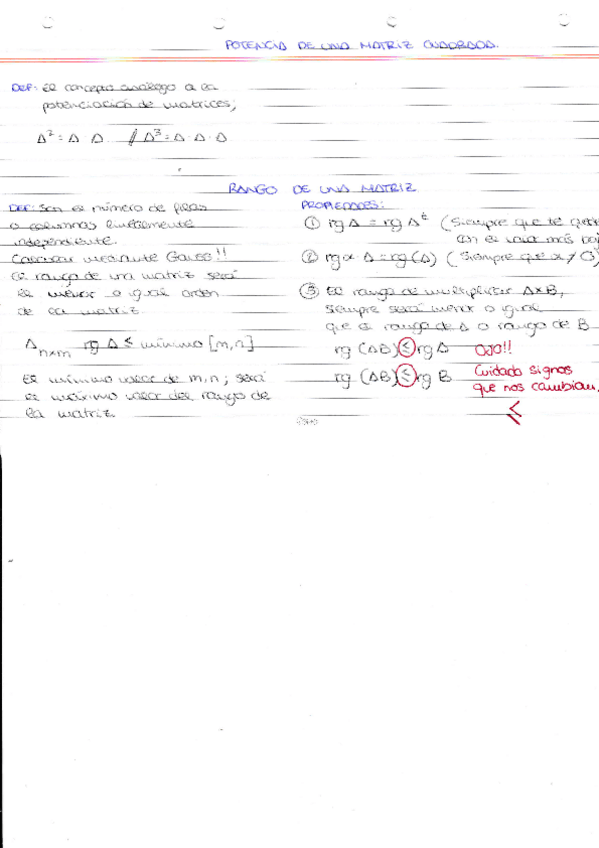 POTENCIA DE UNA MATRIZ CUADRADA.
DEF: El concepto análogo a la
potenciación de matrices;
A² = A · A // A³ = A · A · A
RANGO DE UNA MATRIZ
DEF: Son el número de filas
o columnas linealmente
independiente.
Calcular mediante Gauss!!
El rango de una matriz será
el menor o igual orden
de la matriz.
A n×m rg A ≤ mínimo [m,n]
El mínimo valor de m,n; será
el máximo valor del rango de
la matriz.
PROPIEDADES:
① rg A = rg Aᵗ (Siempre que te
con el más
② rg α A = rg (A) (Siempre que α ≠ 0)
③ El rango de multiplicar A×B,
siempre será menor o igual
que el rango de A o rango de B
rg (AB) ≤ rg A OJO!!
rg (AB) ≤ rg B Cuidado signos
que nos cambian.
≤